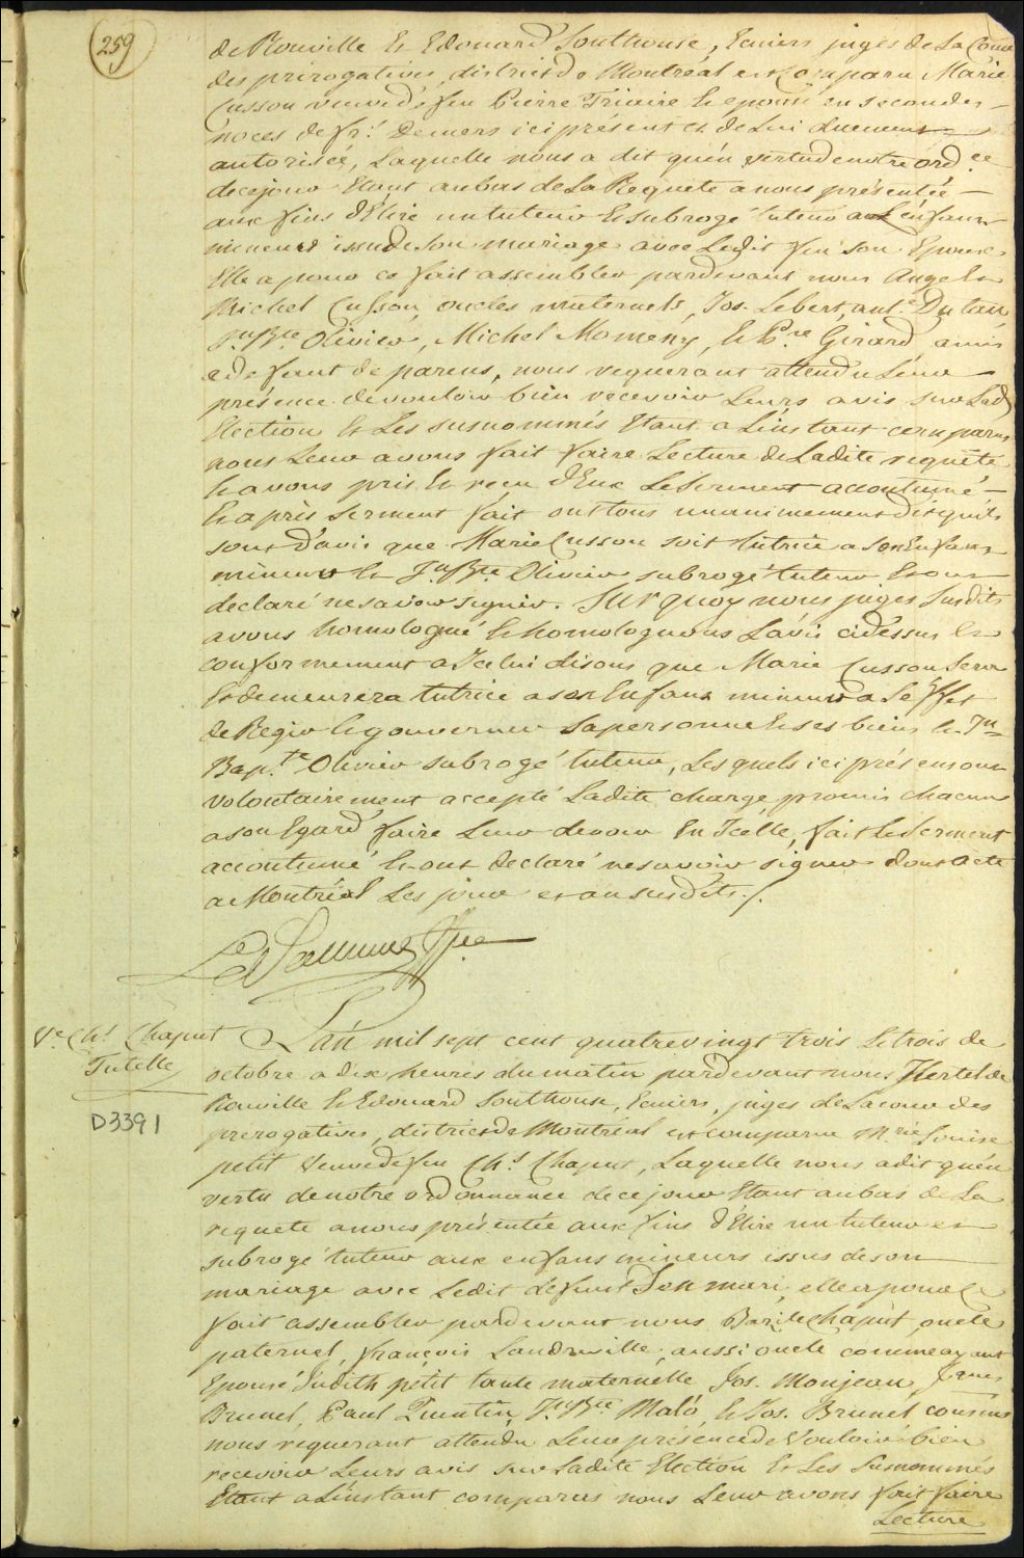 259
de Rouville Et Edouard Southouse, Ecuiers juges de La Cour
des prerogatives, district de Montréal est Comparu Marie
Cusson veuve de feu Pierre Triaire Et epouse en secondes
noces de fr: Demers ici présent et de Lui duement
autorisée, Laquelle nous a dit qu'en vertu de notre ord.ce
de ce jour Etant au bas de La Requete a nous présentée
aux fins d'Elire un tuteur Et subrogé tuteur a enfans
mineurs issu de son mariage avec Ledit feu son Epoux,
Elle a pour ce fait assembler pardevant nous Ange Et
Michel Cusson, oncles maternels, Jos. Lebert, ant.e Dulau
Jn Bte Olivier, Michel Momeny, Et P.re Girard amis
a defaut de parens, nous requerant attendu Leur
présence de vouloir bien recevoir Leurs avis sur Lad
Election Et Les susnommés Etant a L'instant comparus
nous Leur avons fait faire Lecture de Ladite requête
Et avons pris Et reçu d'Eux Le Serment accoutumé
Et après Serment fait ont tous unanimement dit qu'ils
sont d'avis que Marie Cusson soit tutrice a son Enfant
mineur Et Jn Bte Olivier subrogé tuteur Et ont
declaré ne savoir signer. Sur quoy nous juges Susdits
avons homologué Et homologuons L'avis cidessus Et
conformement a Icelui disons que Marie Cusson Sera
Et demeurera tutrice a son Enfant mineur a L'effet
de Regir Et gouverner sa personne Et ses biens Et Jn
Bap.te Olivier subrogé tuteur, Lesquels ici présens ont
volontairement accepté Ladite charge promis chacun
a son Egard faire Leur devoir En Icelle, fait Le Serment
accoutumé Et ont declaré ne savoir signer dont acte
a Montréal Les jour et an susdits ./.
V.e Ch.s Chaput
Tutelle
D3391
L'an mil sept cent quatrevingt trois Le trois de
octobre a dix heures du matin pardevant nous Hertel de
Rouville Et Edouard Southouse, Ecuiers, juges de La cour des
prerogatives, district de Montréal est comparu M.rie Louise
petit Veuve de feu Ch.s Chaput, Laquelle nous a dit qu'en
vertu de notre ordonnance de ce jour Etant au bas de La
requete a nous présentée aux fins d'Elire un tuteur et
subrogé tuteur aux enfans mineurs issus de son
mariage avec Ledit defunt Son mari, elle a pour Ce
fait assembler pardevant nous Bazile Chaput, oncle
paternel, françois Landreville, aussi oncle comme ayant
Epousé Judith petit tante maternelle Jos. Monjean,
Brunel, Paul Quintin, Jn Bte Malo, Et Jos. Brunel cousins
nous requerant attendu Leur présence de Vouloir bien
recevoir Leurs avis sur Ladite Election Et Les Susnommés
Etant a L'instant comparus nous Leur avons fait faire
Lecture